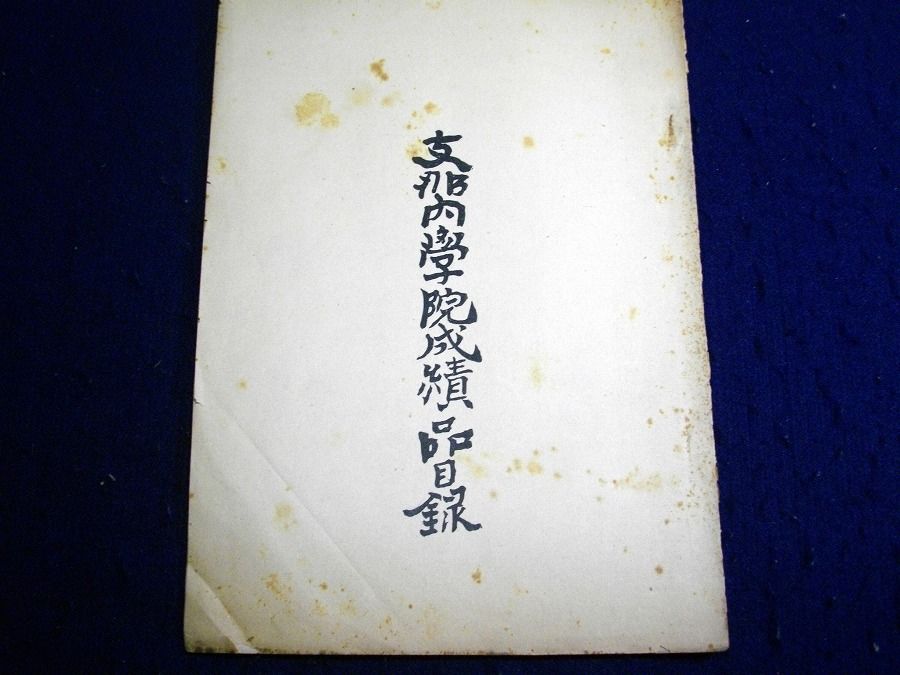 支那內學院成績品目錄